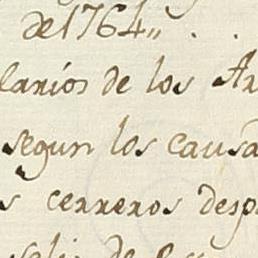 de 1764,, . .
larios de los Ar
segun los causa
s cerreros desp